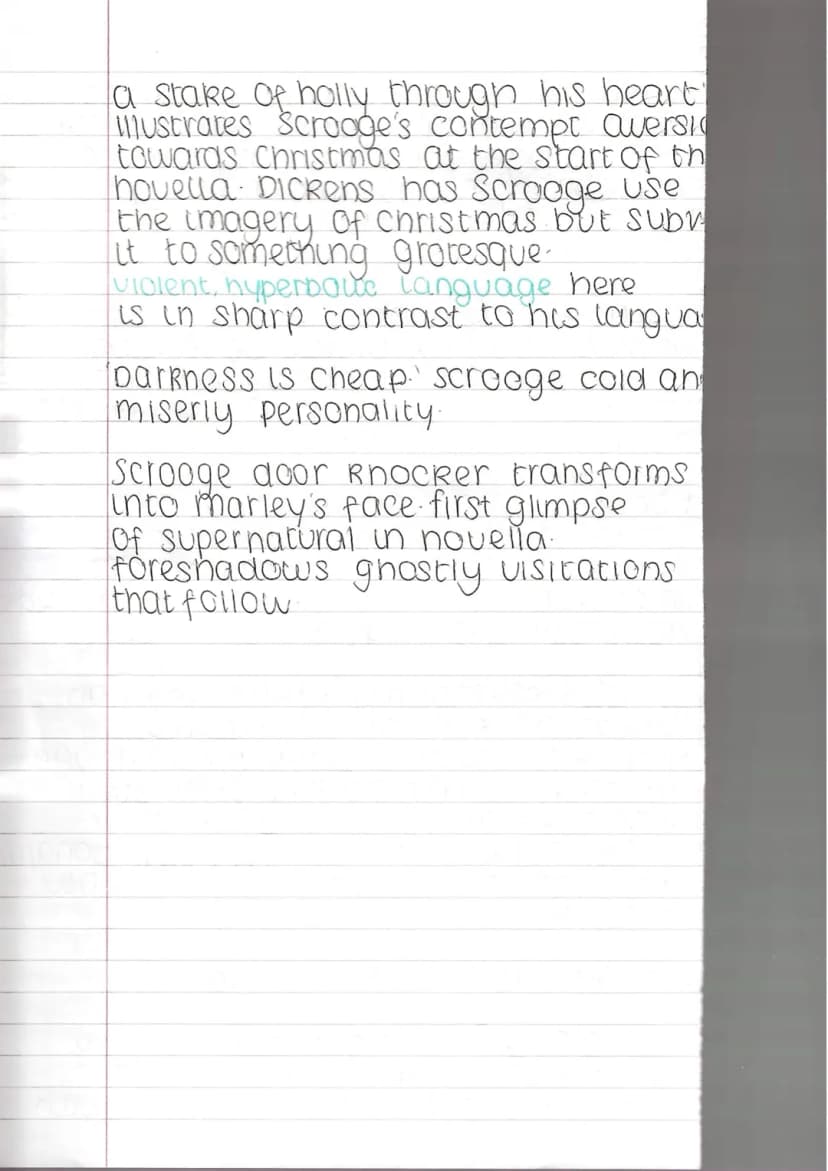 a stake of holly through his heart'
illustrates Scrooge's contempt aversio
towards Christmas at the start of th
novella. Dickens has Scrooge use
the imagery of Christmas but subv
it to something grotesque.
violent, hyperbolic language here
is in sharp contrast to his langua
'Darkness is cheap.' scrooge cold an
miserly personality.
Scrooge door knocker transforms
into Marley's face. first glimpse
of supernatural in novella.
foreshadows ghostly visitations
that follow